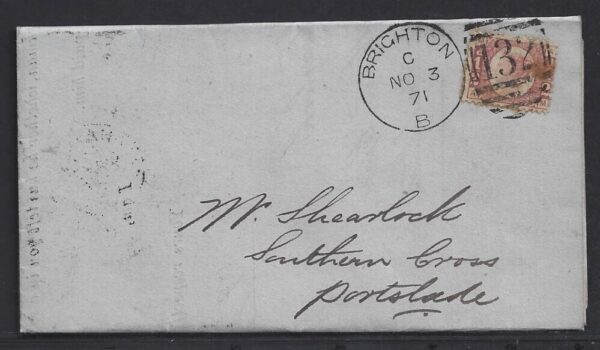 BRIGHTON
C
NO 3
71
B
137
Mr. Shearlock
Southern Cross
Portslade